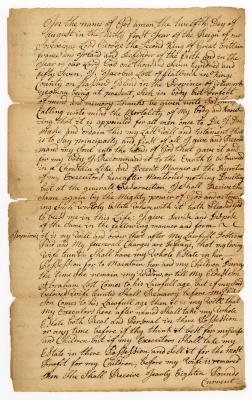 In the name of God amen the twelfth Day of
August in the thirty first Year of the Reign of our
Sovereign Lord George the Second King of Great Brittain
france and Ireland and defender of the Faith and in the
Year of our Lord God one thousand seven hundred and
fifty Seven, I Jacobus Lott of flatlands in Kings
County on Nassau Island in the Province of
being in Body but perfect
of mind and memory Thanks be given unto God
Calling unto mind the mortality of my body and know-
ing that it is appointed for all men once to Die Do
Make and ordain this my Last Will and Testament that
is to Say principally and first of all I give and Recom-
mend my Soul into the hand of God that gave it and
for my body I Recommend it to the Earth to be buried
in a Christian like and Decent Manner at the Discretion
of my Executors hereafter mentioned nothing doubting
but at the general Resurrection I shall Receive the
same again by the Mighty power of God and as touch-
ing such worldly Estate wherewith it hath pleased God
to bless me in this Life: I give Devise and Dispose
of the same in the following manner and form
Imprimis it is my will and order that after my
Paid and my funeral Charges are Discharged, that my loving
Wife shall have my Whole Estate in her
Possession for to Maintain her and my Children During
the time She remain my Widdow, or till My Eldest Son
Abraham Lott Comes to his Lawfull age but if my
beloved Wife should Remarry before my
Son Comes to his Lawfull age then it is my Will that
My Executors here after named shall take my whole
Estate both Real and Personal in there Possession
or any time before if they think it best for my Wife
and Children but if my Executors shall take my
Estate in there Possession and Let it for the most
Profit for my Children, before my Wife is remarried
then She shall Receive yearly Eighteen Pounds
Current